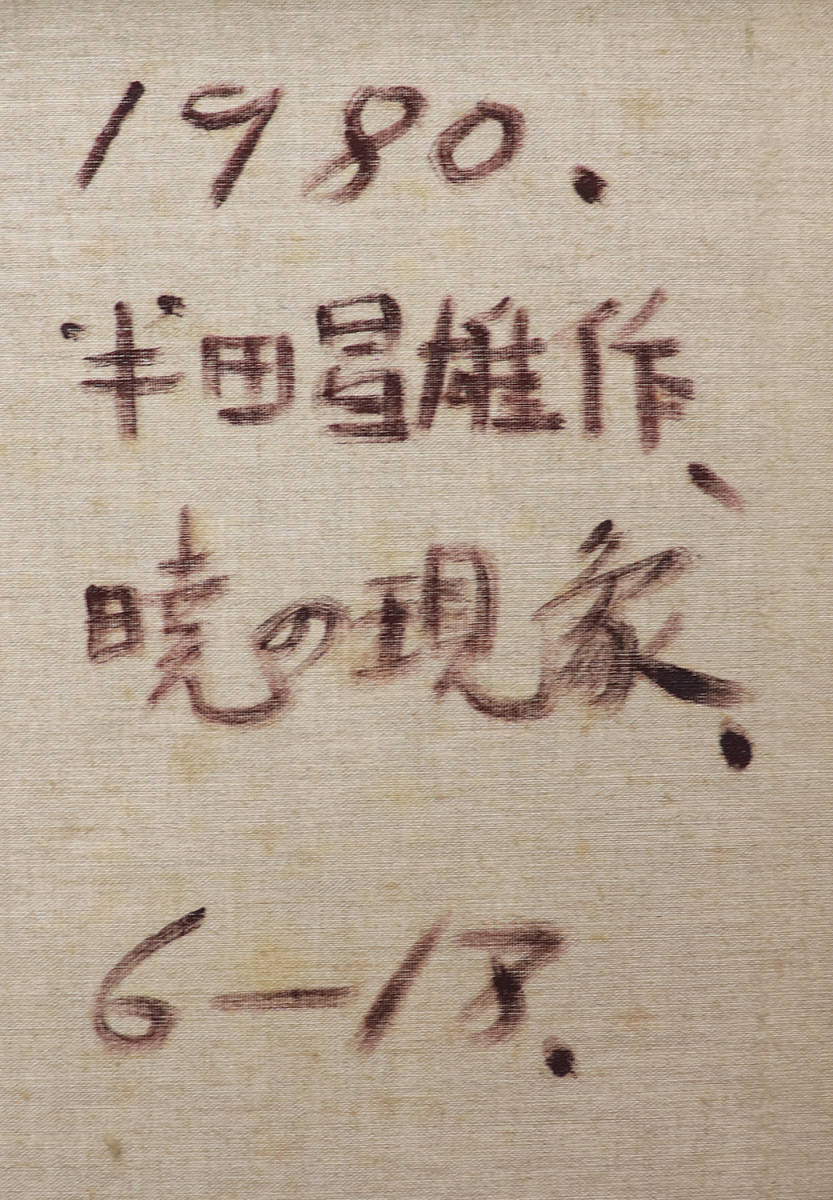 1980.
半田昌雄作、
暁の現象.
6-18.